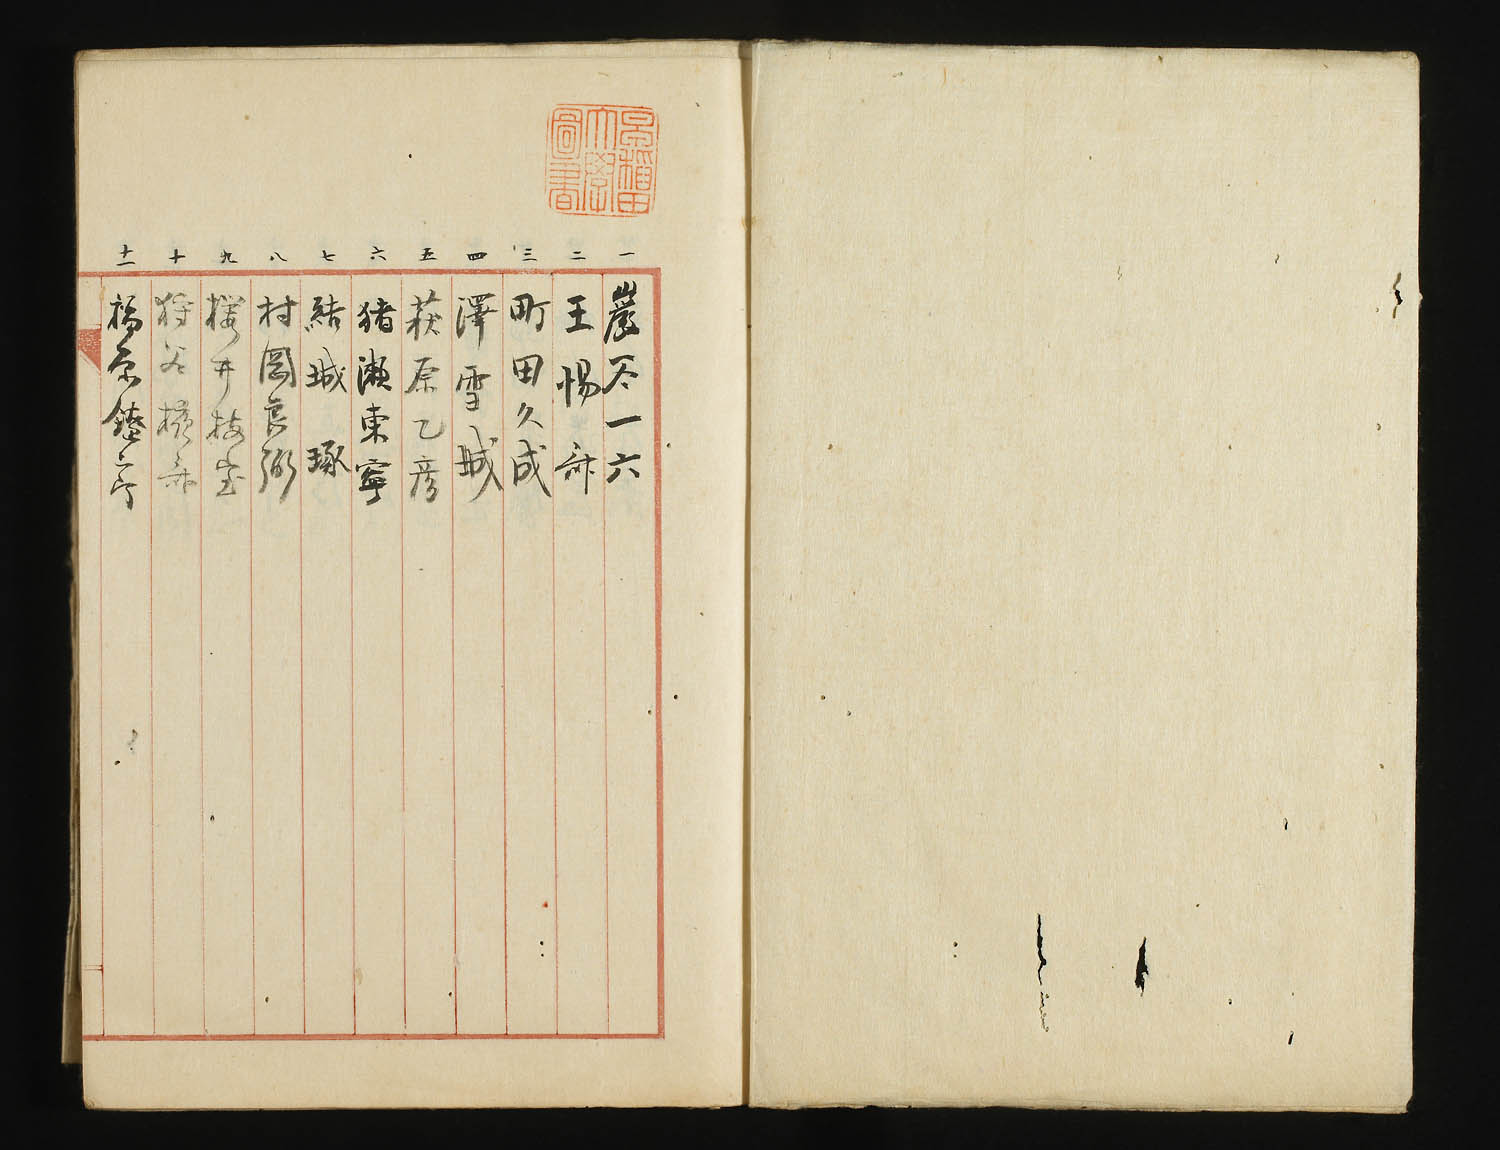 早稲田大學圖書
一 巖谷一六
二 王惕齋
三 町田久成
四 澤雪城
五 萩原乙彦
六 猪瀬東寧
七 結城琢
八 村岡良弼
九 櫻井梅室
十 狩谷棭齋
十一 榊原鐵郎